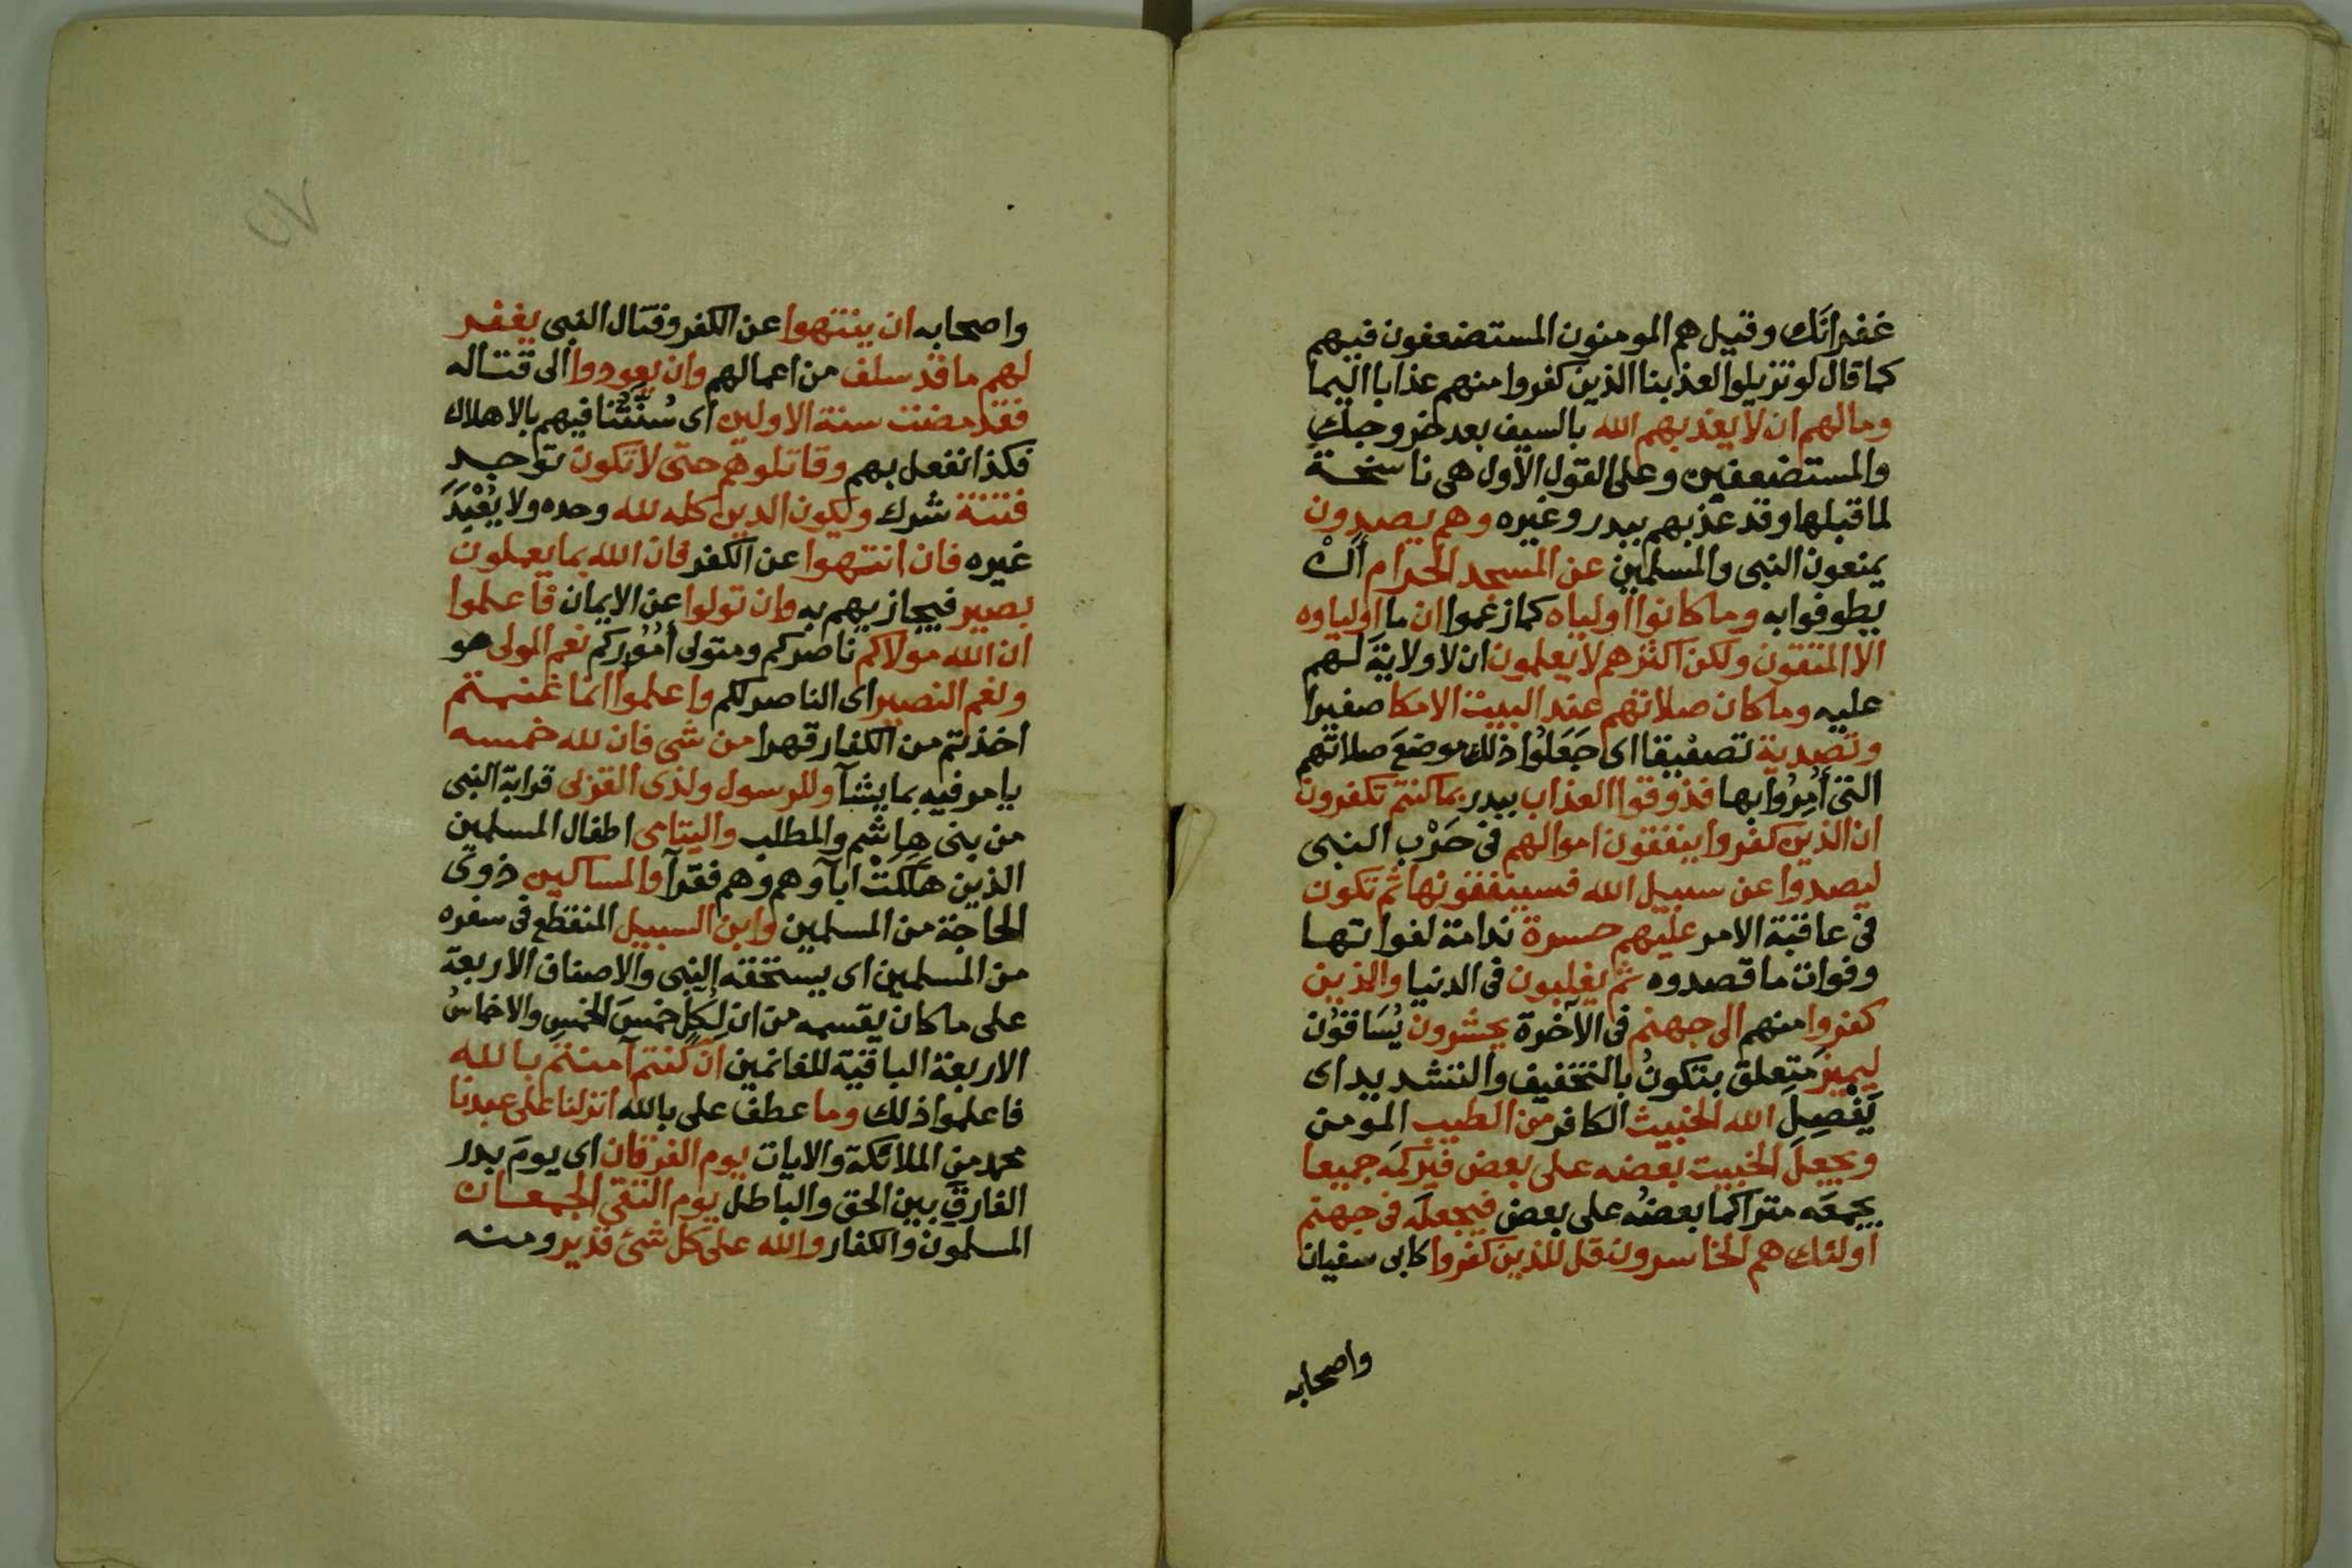 غفرانك وقيل هم المومنون المستضعفون فيهم
كما قال لو تزيلوا لعذبنا الذين كفروا منهم عذابا اليما
وما لهم ان لا يعذبهم الله بالسيف بعد خروجك
والمستضعفين وعلى القول الاول هى ناسخة
لما قبلها وقد عذبهم ببدر وغيره وهم يصدون
يمنعون النبى والمسلمين عن المسجد الحرام ان
يطوفوا به وما كانوا اولياه كما زعموا ان ما اولياوه
الا المتقون ولكن اكثرهم لا يعلمون ان لا ولاية لهم
عليه وما كان صلاتهم عند البيت الا مكا صفيرا
وتصدية تصفيقا اى جَعَلُوا ذلك موضعَ صلاتهم
التى أُمِرُوا بها فذوقوا العذاب ببدر بما كنتم تكفرون
ان الذين كفروا ينفقون اموالهم فى حَرْب النبى
ليصدوا عن سبيل الله فسينفقونها ثم تكون
فى عاقبة الامر عليهم حسرة ندامة لفواتها
وفوات ما قصدوه ثم يغلبون فى الدنيا والذين
كفروا منهم الى جهنم فى الآخرة يحشرون يُسَاقُون
ليميز متعلق بتكونُ بالتخفيف والتشديد اى
يَفْصِلَ الله الخبيث الكافر من الطيب المومن
ويجعل الخبيث بعضه على بعض فيركمه جميعا
يجمعَه متراكما بعضُه على بعض فيجعله فى جهنم
اولئك هم الخاسرون قل للذين كفروا كابى سفيان
واصحابه
واصحابه ان ينتهوا عن الكفر وقتال النبى يغفر
لهم ما قد سلف من اعمالهم وان يعودوا الى قتاله
فقد مضت سنة الاولين اى سُنَّتُنا فيهم بالاهلاك
فكذا نفعل بهم وقاتلوهم حتى لا تكون توجد
فتنة شرك ويكون الدين كله لله وحده ولا يُعْبَدَ
غيره فان انتهوا عن الكفر فان الله بما يعملون
بصير فيجازيهم به وان تولوا عن الايمان فاعلموا
ان الله مولاكم ناصركم ومتولى أُمُوركم نعم المولى هو
ونعم النصير اى الناصر لكم واعلموا انما غنمتم
اخذتم من الكفار قهرا من شى فان لله خمسه
يامر فيه بما يشآ وللرسول ولذى القربى قرابة النبى
من بنى هاشم والمطلب واليتامى اطفال المسلمين
الذين هَلَكَتْ اباوهم وهم فقرآ والمساكين ذوى
الحاجة من المسلمين وابن السبيل المنقطع فى سفره
من المسلمين اى يستحقه النبى والاصناف الاربعة
على ما كان يقسمه من ان لِكُلٍ خمسَ الخمسِ والاخماسُ
الاربعة الباقية للغانمين ان كنتم آمنتم بالله
فاعلموا ذلك وما عطف على بالله انزلنا على عبدنا
محمد من الملائكة والايات يوم الفرقان اى يومَ بدر
الفارقِ بين الحق والباطل يوم التقى الجمعان
المسلمون والكفار والله على كل شئ قدير ومنه